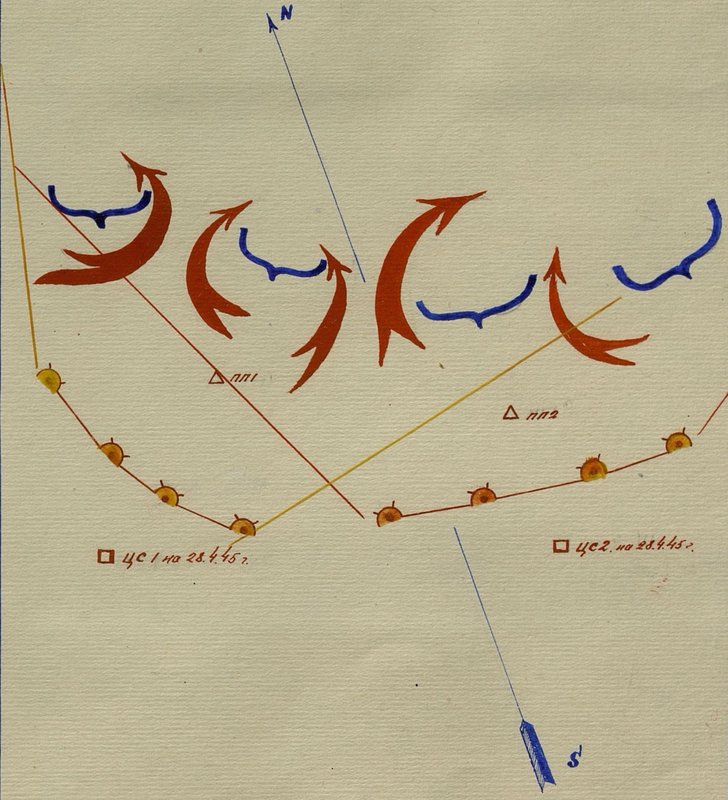 N
ПП1
ПП2
ЦС1 на 28.4.45г.
ЦС2. на 28.4.45г.
S